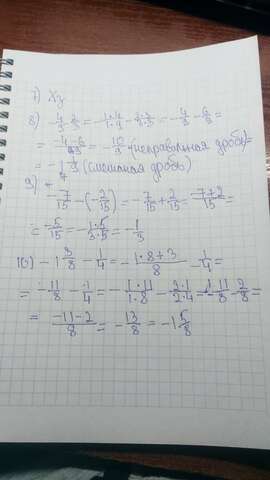 7) Хз
8) -4/9 - 2/3 = -1·4/1·9 - 2·3/3·3 = -4/9 - 6/9 =
= -4-6/9 = -10/9 (неправильная дробь) =
= -1 1/9 (смешаная дробь)
9) -7/15 - (-2/15) = -7/15 + 2/15 = -7+2/15 =
= -5/15 = -1·5/3·5 = -1/3
10) -1 3/8 - 1/4 = -1·8+3/8 - 1/4 =
= -11/8 - 1/4 = -1·11/1·8 - 2·1/2·4 = -11/8 - 2/8 =
= -11-2/8 = -13/8 = -1 5/8